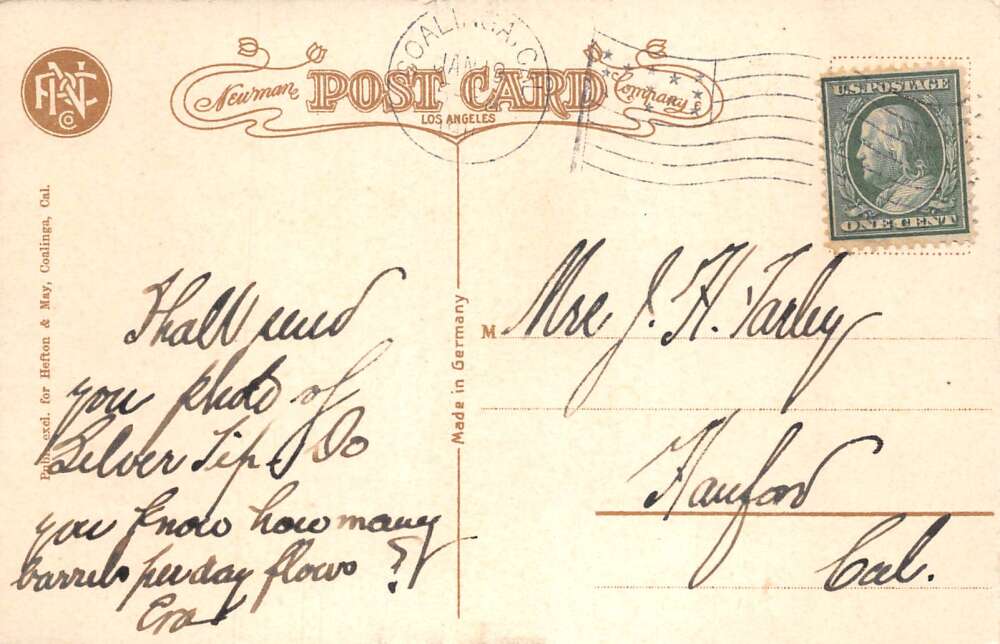 PNC Co
Newman POST CARD Company
LOS ANGELES
COALINGA, C
JAN 19
U.S. POSTAGE
ONE CENT
Publ. excl. for Hefton & May, Coalinga, Cal.
Made in Germany
Shall send
you photo of
Silver Tip. Do
you know how many
barrels per day flows ?
Era
M Mrs. J. H. Farley
Hanford
Cal.